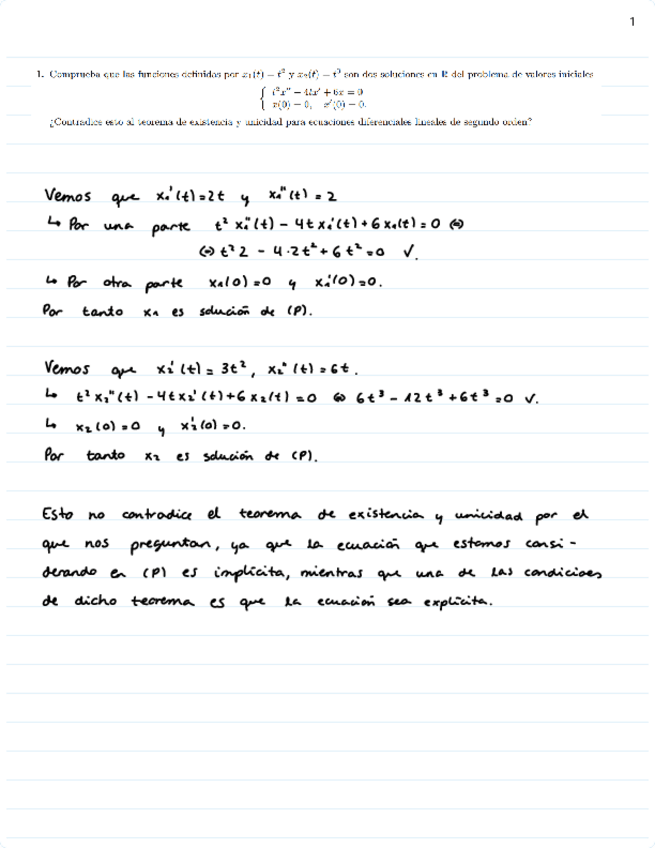 1
1. Comprueba que las funciones definidas por x₁(t) = t² y x₂(t) = t³ son dos soluciones en ℝ del problema de valores iniciales
{ t²x'' − 4tx' + 6x = 0
x(0) = 0, x'(0) = 0.
¿Contradice esto al teorema de existencia y unicidad para ecuaciones diferenciales lineales de segundo orden?
Vemos que x₁'(t)=2t y x₁''(t) = 2
↳ Por una parte t² x₁''(t) − 4t x₁'(t) + 6 x₁(t) = 0 ⇔
⇔ t² 2 − 4·2t² + 6t² = 0 ✓.
↳ Por otra parte x₁(0) = 0 y x₁'(0) = 0.
Por tanto x₁ es solución de (P).
Vemos que x₂'(t) = 3t², x₂''(t) = 6t.
↳ t² x₂''(t) − 4t x₂'(t) + 6 x₂(t) = 0 ⇔ 6t³ − 12t³ + 6t³ = 0 ✓.
↳ x₂(0) = 0 y x₂'(0) = 0.
Por tanto x₂ es solución de (P).
Esto no contradice el teorema de existencia y unicidad por el
que nos preguntan, ya que la ecuación que estamos consi-
derando en (P) es implícita, mientras que una de las condiciones
de dicho teorema es que la ecuación sea explícita.